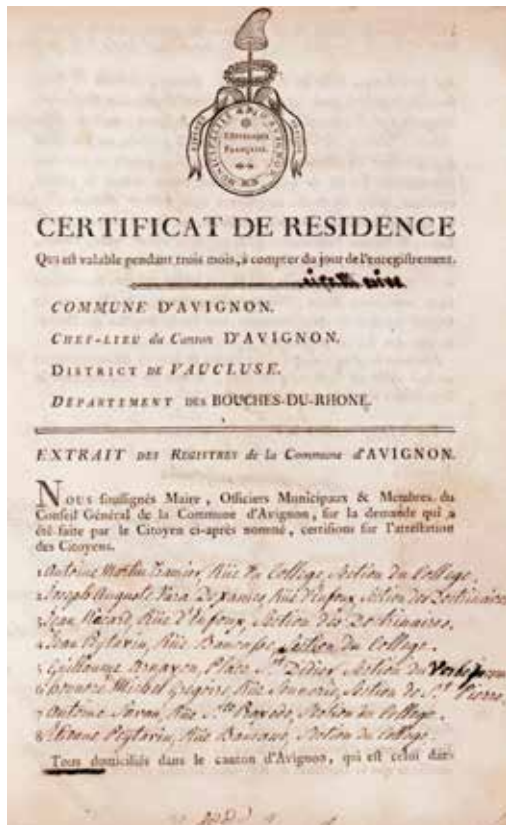 MUNICIPALITÉ D'AVIGNON
RÉPUBLIQUE
FRANÇAISE
CERTIFICAT DE RESIDENCE
Qui est valable pendant trois mois, à compter du jour de l'enregistrement.
COMMUNE D'AVIGNON.
CHEF-LIEU du Canton D'AVIGNON.
DISTRICT DE VAUCLUSE.
DÉPARTEMENT DES BOUCHES-DU-RHONE.
EXTRAIT DES REGISTRES de la Commune d'AVIGNON.
NOUS soussignés Maire, Officiers Municipaux & Membres du
Conseil Général de la Commune d'Avignon, sur la demande qui a
été faite par le Citoyen ci-après nommé, certifions sur l'attestation
des Citoyens.
1 Antoine Rüe du College, Section du College.
2 Joseph Auguste Rüe Section des Doctrinaires
3 Jean Rüe Section des Doctrinaires.
4 Jean Peytavin, Rüe Bancasse, Section du College.
5 Guillaume Place St. Didier, Section du
6 honnoré Michel Gregoire, Rüe Section de St. Pierre.
7 Antoine Rüe Section du College.
8 Etienne Peytavin, Rüe Section du College.
Tous domiciliés dans le canton d'Avignon, qui est celui dans